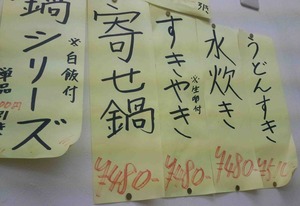 鍋シリーズ
※白飯付
単品
引き
寄せ鍋
¥480-
すきやき
※生卵付
¥480-
水炊き
¥480-
うどんすき
¥510-